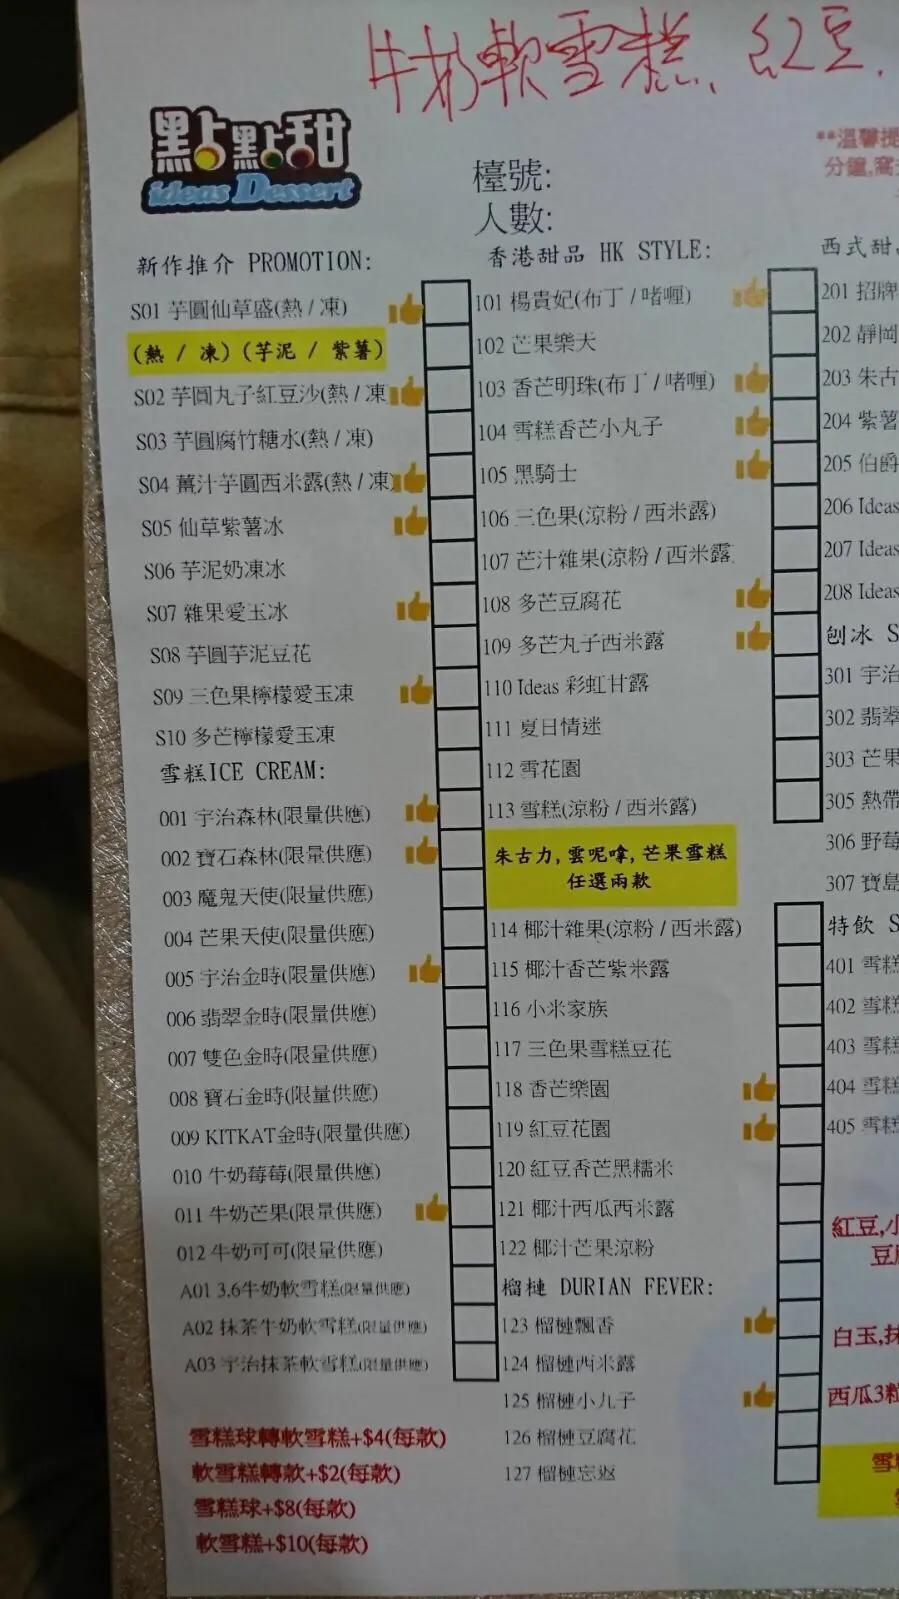 牛奶軟雪糕、紅豆、
點點甜
ideas Dessert
檯號:
人數:
**溫馨提
分鐘,
新作推介 PROMOTION:
S01 芋圓仙草盛(熱 / 凍)
(熱 / 凍) (芋泥 / 紫薯)
S02 芋圓丸子紅豆沙(熱 / 凍
S03 芋圓腐竹糖水(熱 / 凍)
S04 薑汁芋圓西米露(熱 / 凍)
S05 仙草紫薯冰
S06 芋泥奶凍冰
S07 雜果愛玉冰
S08 芋圓芋泥豆花
S09 三色果檸檬愛玉凍
S10 多芒檸檬愛玉凍
雪糕ICE CREAM:
001 宇治森林(限量供應)
002 寶石森林(限量供應)
003 魔鬼天使(限量供應)
004 芒果天使(限量供應)
005 宇治金時(限量供應)
006 翡翠金時(限量供應)
007 雙色金時(限量供應)
008 寶石金時(限量供應)
009 KITKAT金時(限量供應)
010 牛奶莓莓(限量供應)
011 牛奶芒果(限量供應)
012 牛奶可可(限量供應)
A01 3.6牛奶軟雪糕(限量供應)
A02 抹茶牛奶軟雪糕(限量供應)
A03 宇治抹茶軟雪糕(限量供應)
雪糕球轉軟雪糕+$4(每款)
軟雪糕轉款+$2(每款)
雪糕球+$8(每款)
軟雪糕+$10(每款)
香港甜品 HK STYLE:
101 楊貴妃(布丁 / 啫喱)
102 芒果樂天
103 香芒明珠(布丁 / 啫喱)
104 雪糕香芒小丸子
105 黑騎士
106 三色果(涼粉 / 西米露)
107 芒汁雜果(涼粉 / 西米露
108 多芒豆腐花
109 多芒丸子西米露
110 Ideas 彩虹甘露
111 夏日情迷
112 雪花園
113 雪糕(涼粉 / 西米露)
朱古力,雲呢嗱,芒果雪糕
任選兩款
114 椰汁雜果(涼粉 / 西米露)
115 椰汁香芒紫米露
116 小米家族
117 三色果雪糕豆花
118 香芒樂園
119 紅豆花園
120 紅豆香芒黑糯米
121 椰汁西瓜西米露
122 椰汁芒果涼粉
榴槤 DURIAN FEVER:
123 榴槤飄香
124 榴槤西米露
125 榴槤小丸子
126 榴槤豆腐花
127 榴槤忘返
西式甜
201 招牌
202 靜岡
203 朱古
204 紫薯
205 伯爵
206 Ideas
207 Ideas
208 Ideas
刨冰 S
301 宇治
302 翡翠
303 芒果
305 熱帶
306 野莓
307 寶島
特飲 S
401 雪糕
402 雪糕
403 雪糕
404 雪糕
405 雪糕
紅豆,小
豆
白玉,抹
西瓜3粒
雪